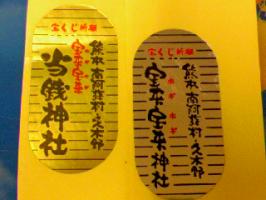 宝くじ祈願
熊本 南阿蘇村 久木野
宝来宝来
ホギホギ
当銭神社
宝くじ祈願
熊本 南阿蘇村 久木野
宝来宝来神社
ホギ ホギ